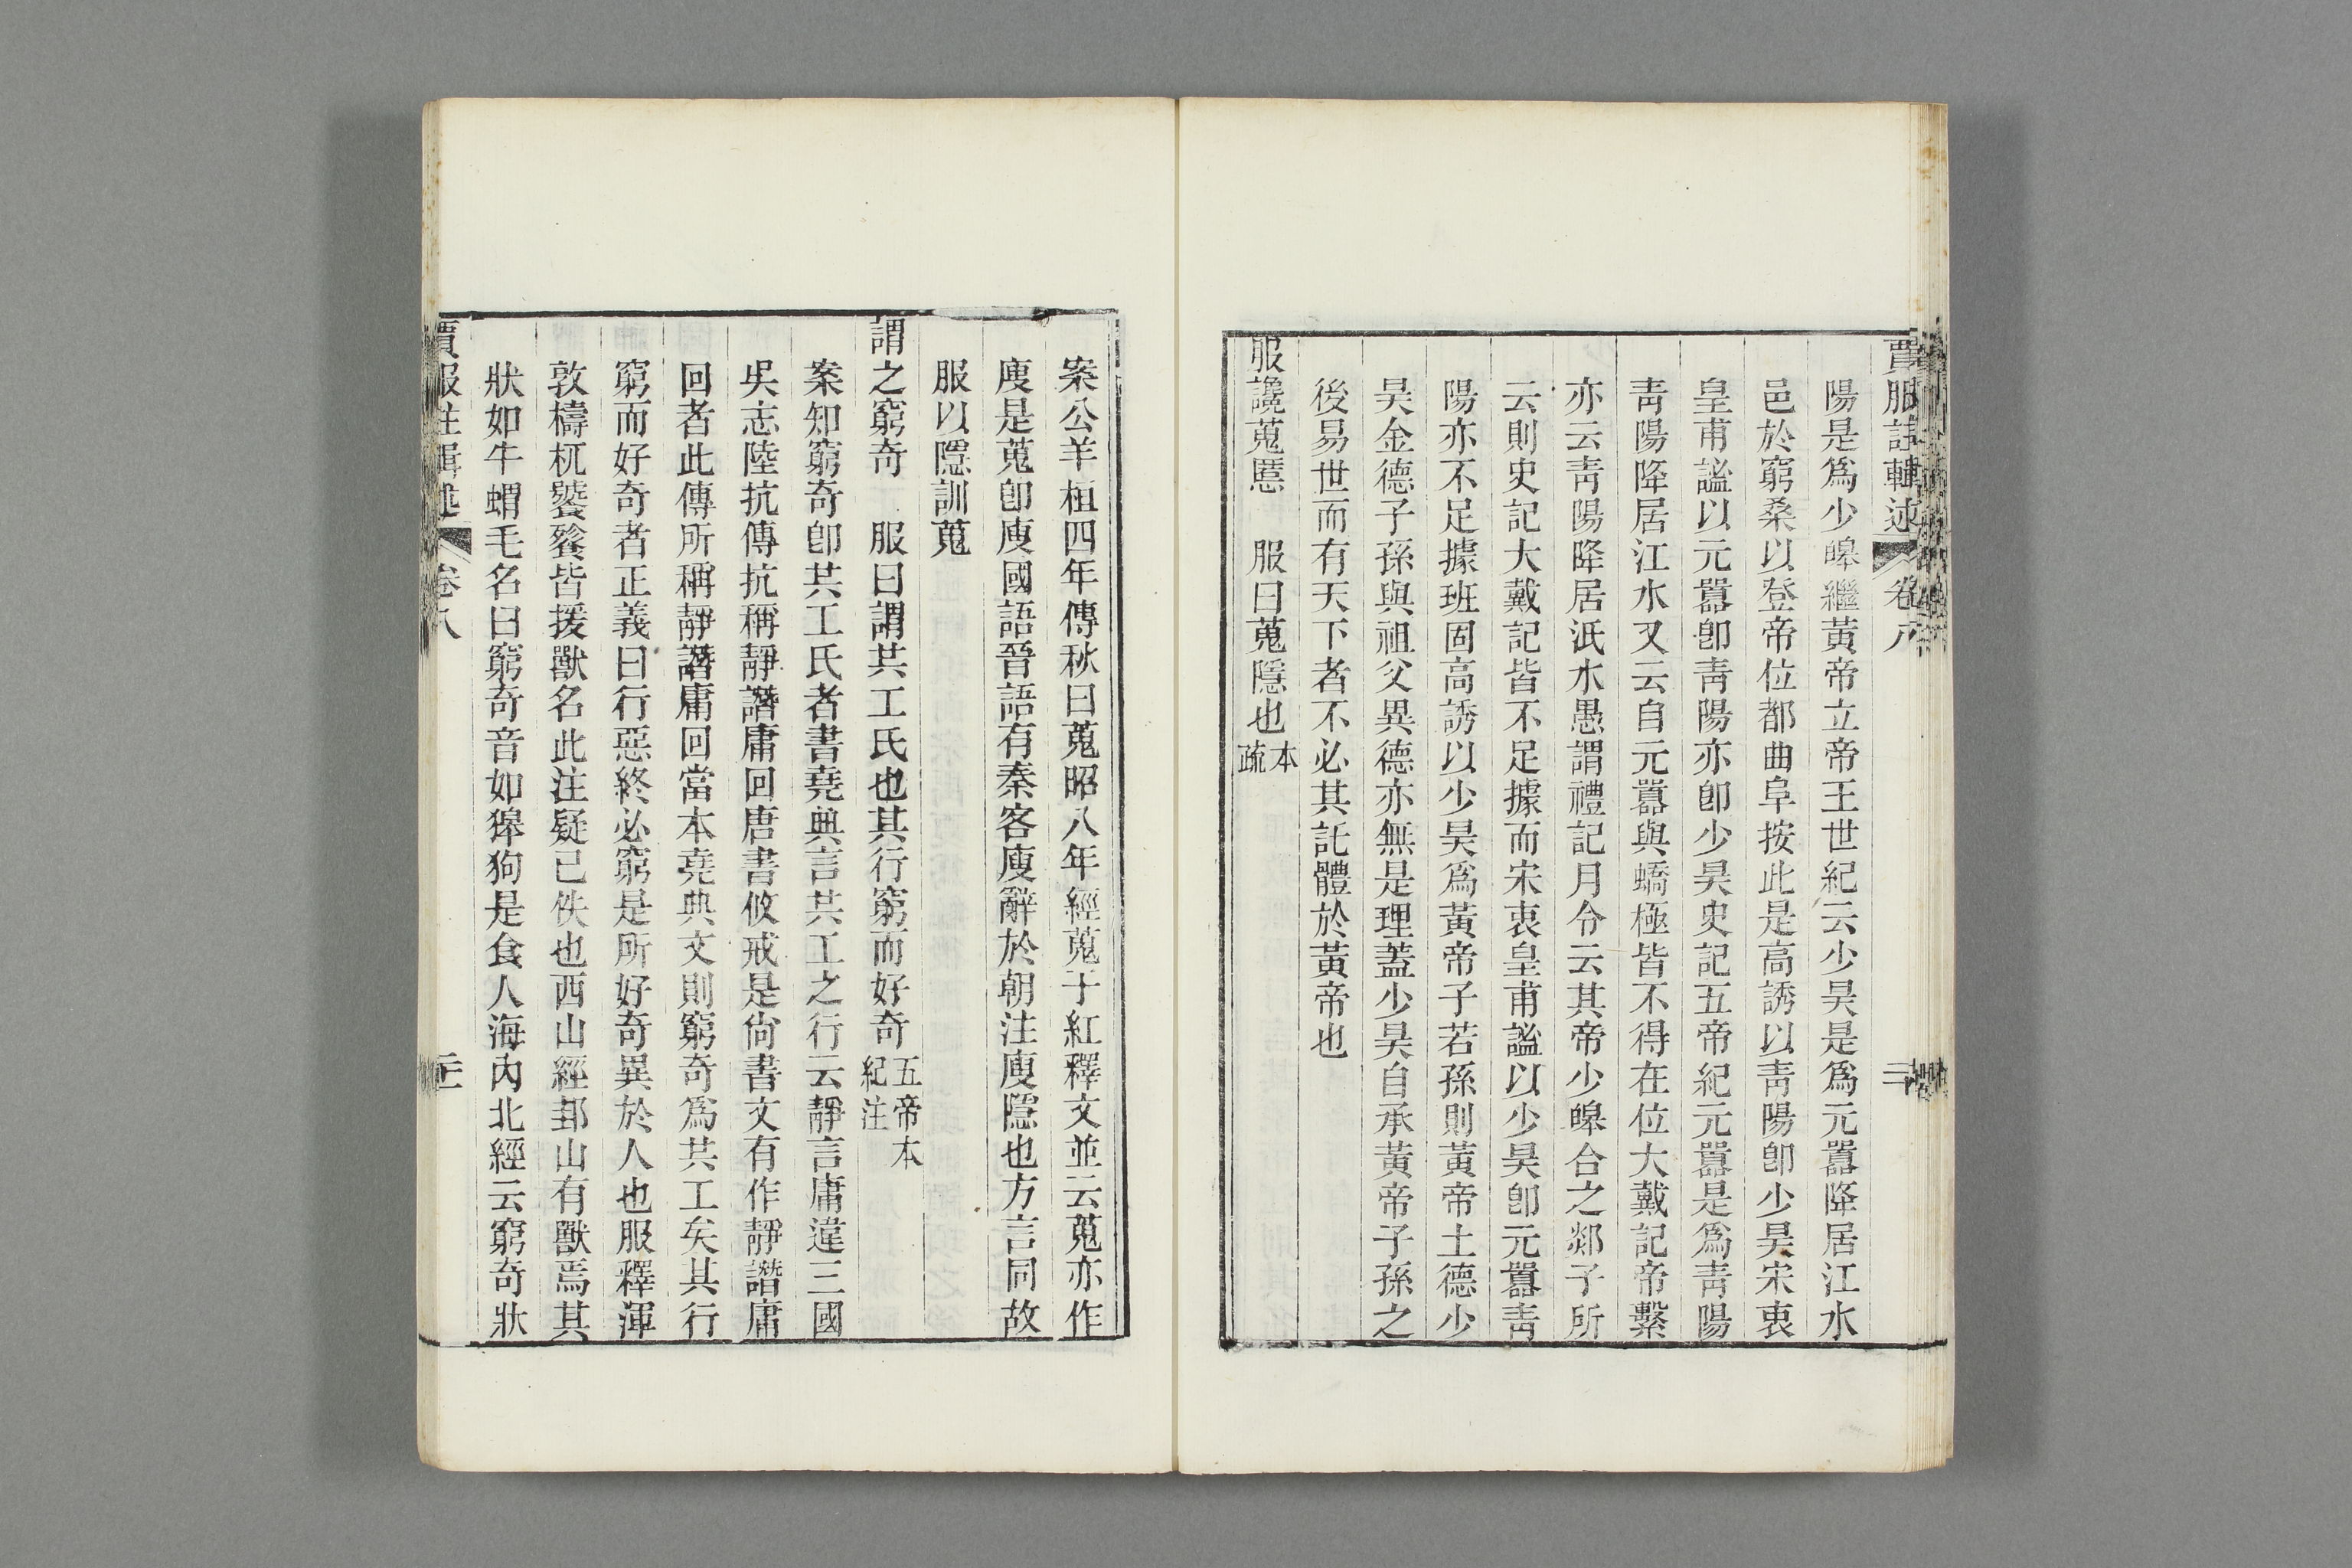 賈服註輯述 卷八
陽是爲少皞繼黃帝立帝王世紀云少昊是爲元囂降居江水
邑於窮桑以登帝位都曲阜按此是高誘以靑陽卽少昊宋衷
皇甫謐以元囂卽靑陽亦卽少昊史記五帝紀元囂是爲靑陽
靑陽降居江水又云自元囂與蟜極皆不得在位大戴記帝繫
亦云靑陽降居泜水愚謂禮記月令云其帝少皞合之郯子所
云則史記大戴記皆不足據而宋衷皇甫謐以少昊卽元囂靑
陽亦不足據班固高誘以少昊爲黃帝子若孫則黃帝土德少
昊金德子孫與祖父異德亦無是理蓋少昊自承黃帝子孫之
後易世而有天下者不必其託體於黃帝也
服讒蒐慝 服曰蒐隱也本疏
案公羊桓四年傳秋曰蒐昭八年經蒐于紅釋文並云蒐亦作
廋是蒐卽廋國語晉語有秦客廋辭於朝注廋隱也方言同故
服以隱訓蒐
謂之窮奇 服曰謂共工氏也其行窮而好奇五帝本紀注
案知窮奇卽共工氏者書堯典言共工之行云靜言庸違三國
吳志陸抗傳抗稱靜譖庸回唐書攸戒是尙書文有作靜譖庸
回者此傳所稱靜譖庸回當本堯典文則窮奇爲共工矣其行
窮而好奇者正義曰行惡終必窮是所好奇異於人也服釋渾
敦檮杌饕餮皆援獸名此注疑已佚也西山經邽山有獸焉其
狀如牛蝟毛名曰窮奇音如獆狗是食人海內北經云窮奇狀
賈服註輯述 卷八